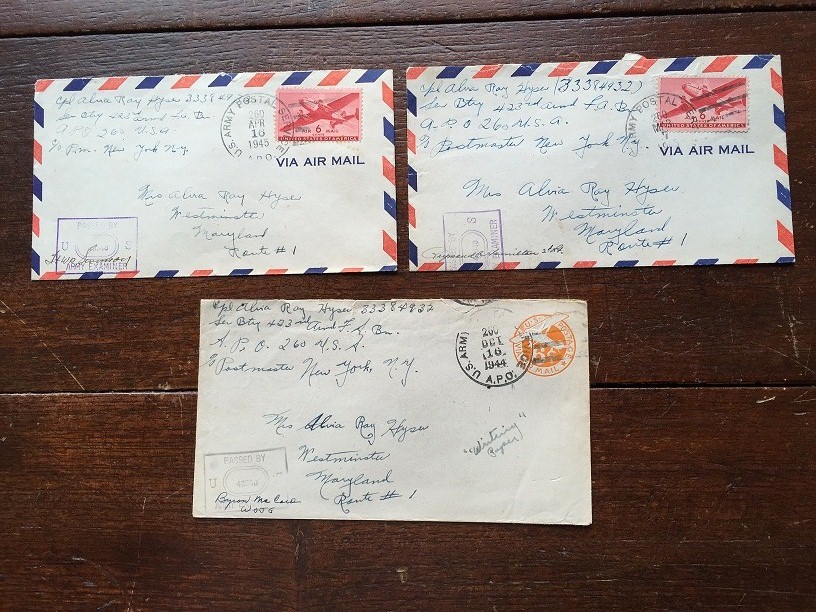 Cpl Alvia Ray Hyser 33384932
Ser Bty 423rd Arnd F.A. Bn
A.P.O 260 U.S.A
c/o P.m. New York N.y.
U.S. ARMY POSTAL SERVICE
260
APR
16
1945
A.P.O.
AIR 6¢ MAIL
UNITED STATES OF AMERICA
VIA AIR MAIL
Mrs Alvia Ray Hyser
Westminster
Maryland
Route #1
PASSED BY
U S
ARMY EXAMINER
Cpl Alvia Ray Hyser (33384932)
Ser Bty 423rd Arnd F.A. Bn
A.P.O 260 U.S.A.
c/o Postmaster New York Ny.
ARMY POSTAL
260
MAR
6¢
UNITED STATES OF AMERICA
VIA AIR MAIL
Mrs Alvia Ray Hyser
Westminster
Maryland
Route #1
PASSED BY
U S
ARMY EXAMINER
Cpl Alvia Ray Hyser 33384932
Ser Bty 423rd Arnd F.A. Bn.
A.P.O. 260 U.S.A.
c/o Postmaster New York, N.Y.
U.S. ARMY
260
OCT
16
1944
A.P.O.
U.S. POSTAGE
AIR MAIL
Mrs Alvia Ray Hyser
Westminster
Maryland
Route #1
"Writing"
paper
PASSED BY
U
Byron Mc Cain
WOJG